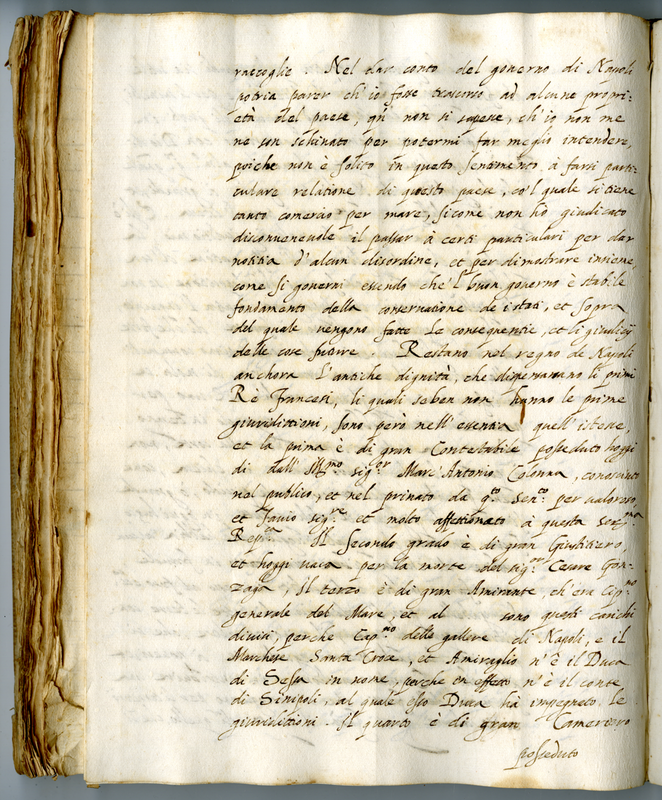 raccoglie. Nel dar conto del governo di Napoli
potria parer ch'io fosse trascorso ad alcune propri-
età del paese, qñ non si sapese, ch'io non me
ne son schinato per potermi far meglio intendere,
poiche non è solito in questo Sentimento à farsi parti-
culare relatione di questo paese, co'l quale si tiene
tanto comercio per mare, sicome non hò giudicato
disconueneuole il passar à certi particulari per dar
notitia d'alcun disordine, et per dimostrare insieme,
come si governi essendo che'l buon governo è stabile
fondamento della conseruatione de i stati, et sopra
del quale uengono fatte le consequentie, et li giudicij
delle cose future. Restano nel regno de Napoli
anchora l'antiche dignità, che dispensauano li primi
Rè Francesi, li quali seben non hanno le prime
giurisdittioni, sono però nell'essentia quell'istesse,
et la prima è di gran Contestabile posseduto hoggi
di dall' Ill.mo sig.or Marc'Antonio Colonna, conosciuto
nel publico, et nel priuato da q.to Sen.to per ualoroso,
et sauio sig.re et molto affettionato à questa Ser.ma
Rep.ca Il Secondo grado è di gran Giustitiero,
et hoggi uaca per la morte del sig.or Cesare Gon-
zaga, Il terzo è di gran Amirante, ch'era Cap.no
generale del Mare, et al sono questi carichi
diuisi, perche Cap.no delle gallere di Napoli, e il
Marchese Santa Croce, et Amiraglio n'è il Duca
di Sessa in nome, perche en effetto n'è il conte
di Sinopoli, al quale esso Duca hà impegnato le
giurisdittioni. Il quarto è di gran Camerero
posseduto